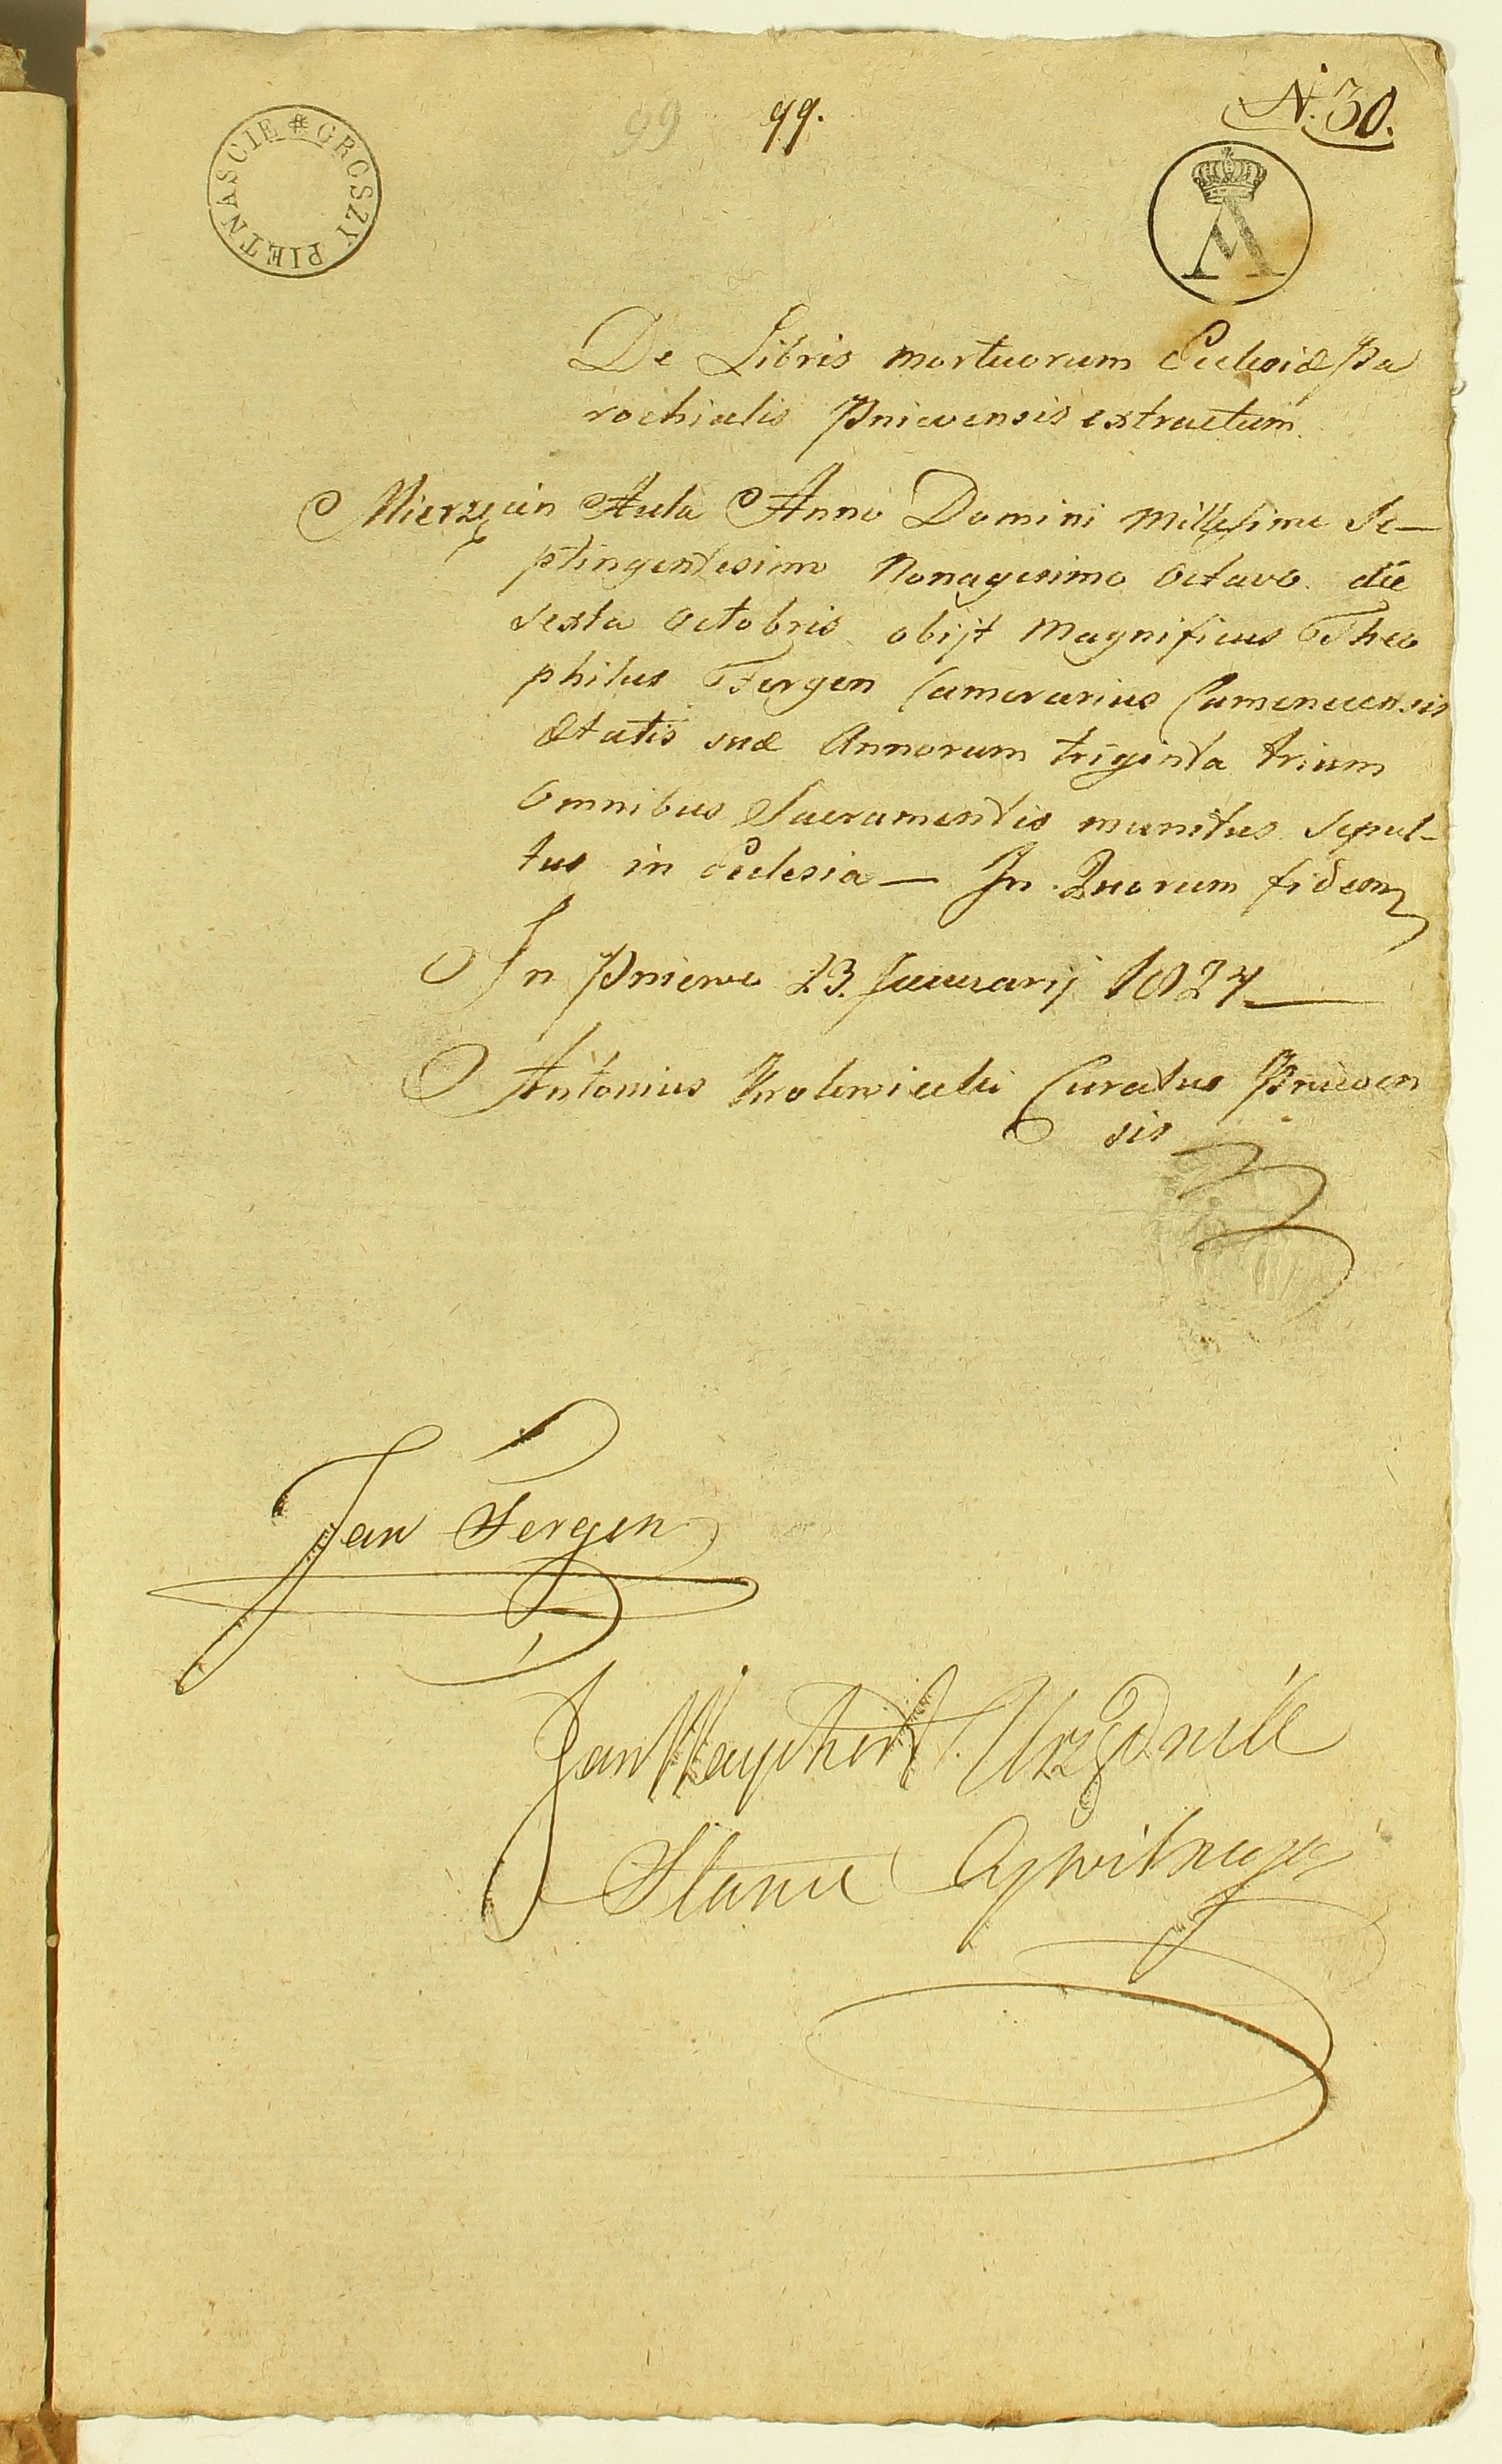 99 99.
N. 30.
GROSZY PIETNASCIE
A
De Libris mortuorum Eclesiæ Pa
rochialis Pnievensis extractum
Mierzęcin Aula Anno Domini Millesimo Se–
ptingentesimo Nonagesimo octavo die
sexta octobris obijt Magnificus Theo
philus Fergen Camerarius Camenecensis
Ætatis suæ Annorum triginta trium
Omnibus Sacramentis munitus Sepul–
tus in Eclesia — In Quorum fidem
In Pniewo 23. Januarij 1824
Antonius Krolewicki Curatus Pnieven
sis
Jan Fergen
Jan Urzędnik
Stanu Cywilnego